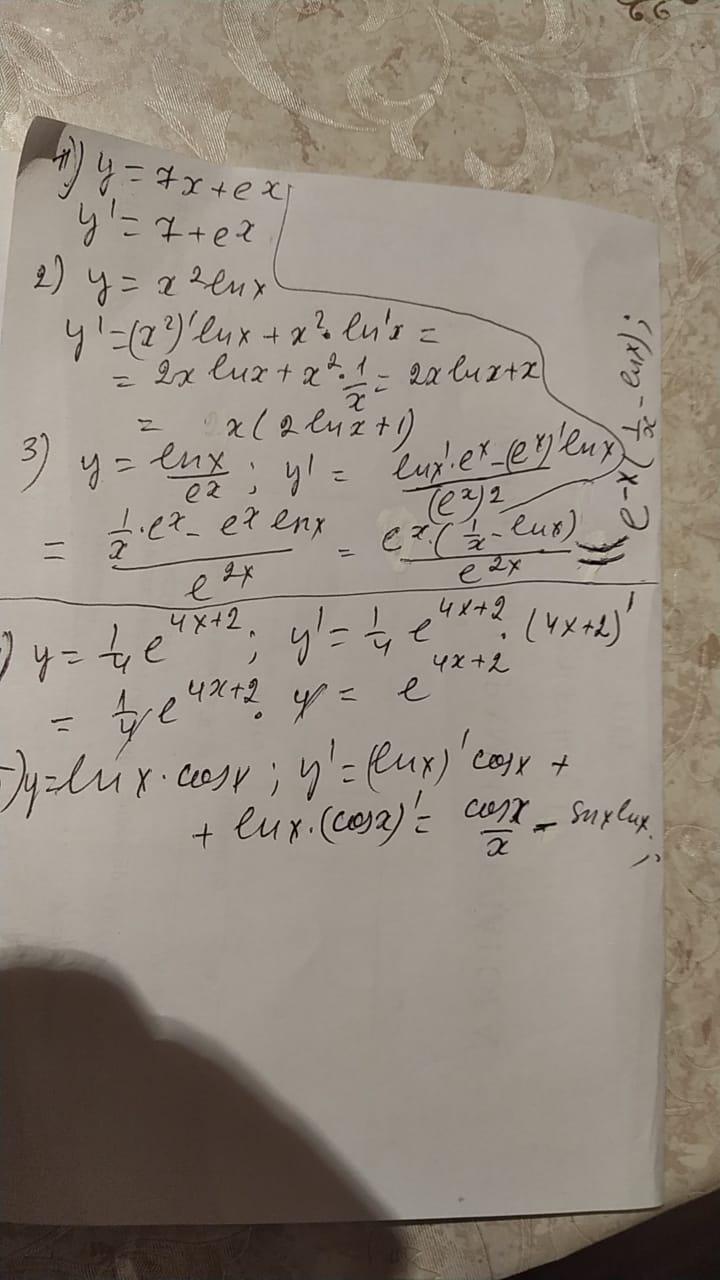 1) y = 7x + eˣ
y' = 7 + eˣ
2) y = x² lnx
y' = (x²)' lnx + x² · ln'x =
= 2x lnx + x² · 1/x = 2x lnx + x
= x(2 lnx + 1)
3) y = lnx/eˣ ; y' = (lnx' · eˣ − (eˣ)' lnx)/(eˣ)²
= (1/x · eˣ − eˣ lnx)/e²ˣ = eˣ · (1/x − lnx)/e²ˣ =
e⁻ˣ (1/x − lnx);
) y = 1/4 e⁴ˣ⁺² ; y' = 1/4 e⁴ˣ⁺² · (4x+2)'
= 1/4 e⁴ˣ⁺² · 4 = e⁴ˣ⁺²
) y = lnx · cosx ; y' = (lnx)' cosx +
+ lnx · (cosx)' = cosx/x − sinx lnx;